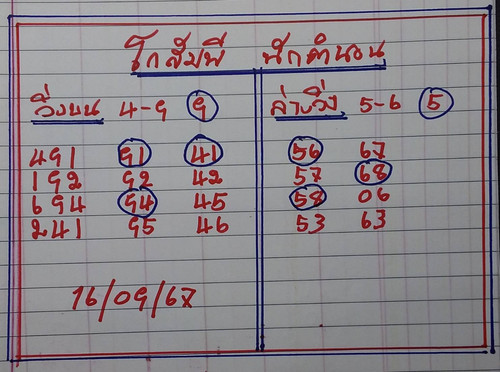 โกสัมพี นักคำนวน
วิ่งบน 4-9 9
491 91 41
192 92 42
694 94 45
241 95 46
16/09/67
ล่างวิ่ง 5-6 5
56 67
57 68
58 06
53 63